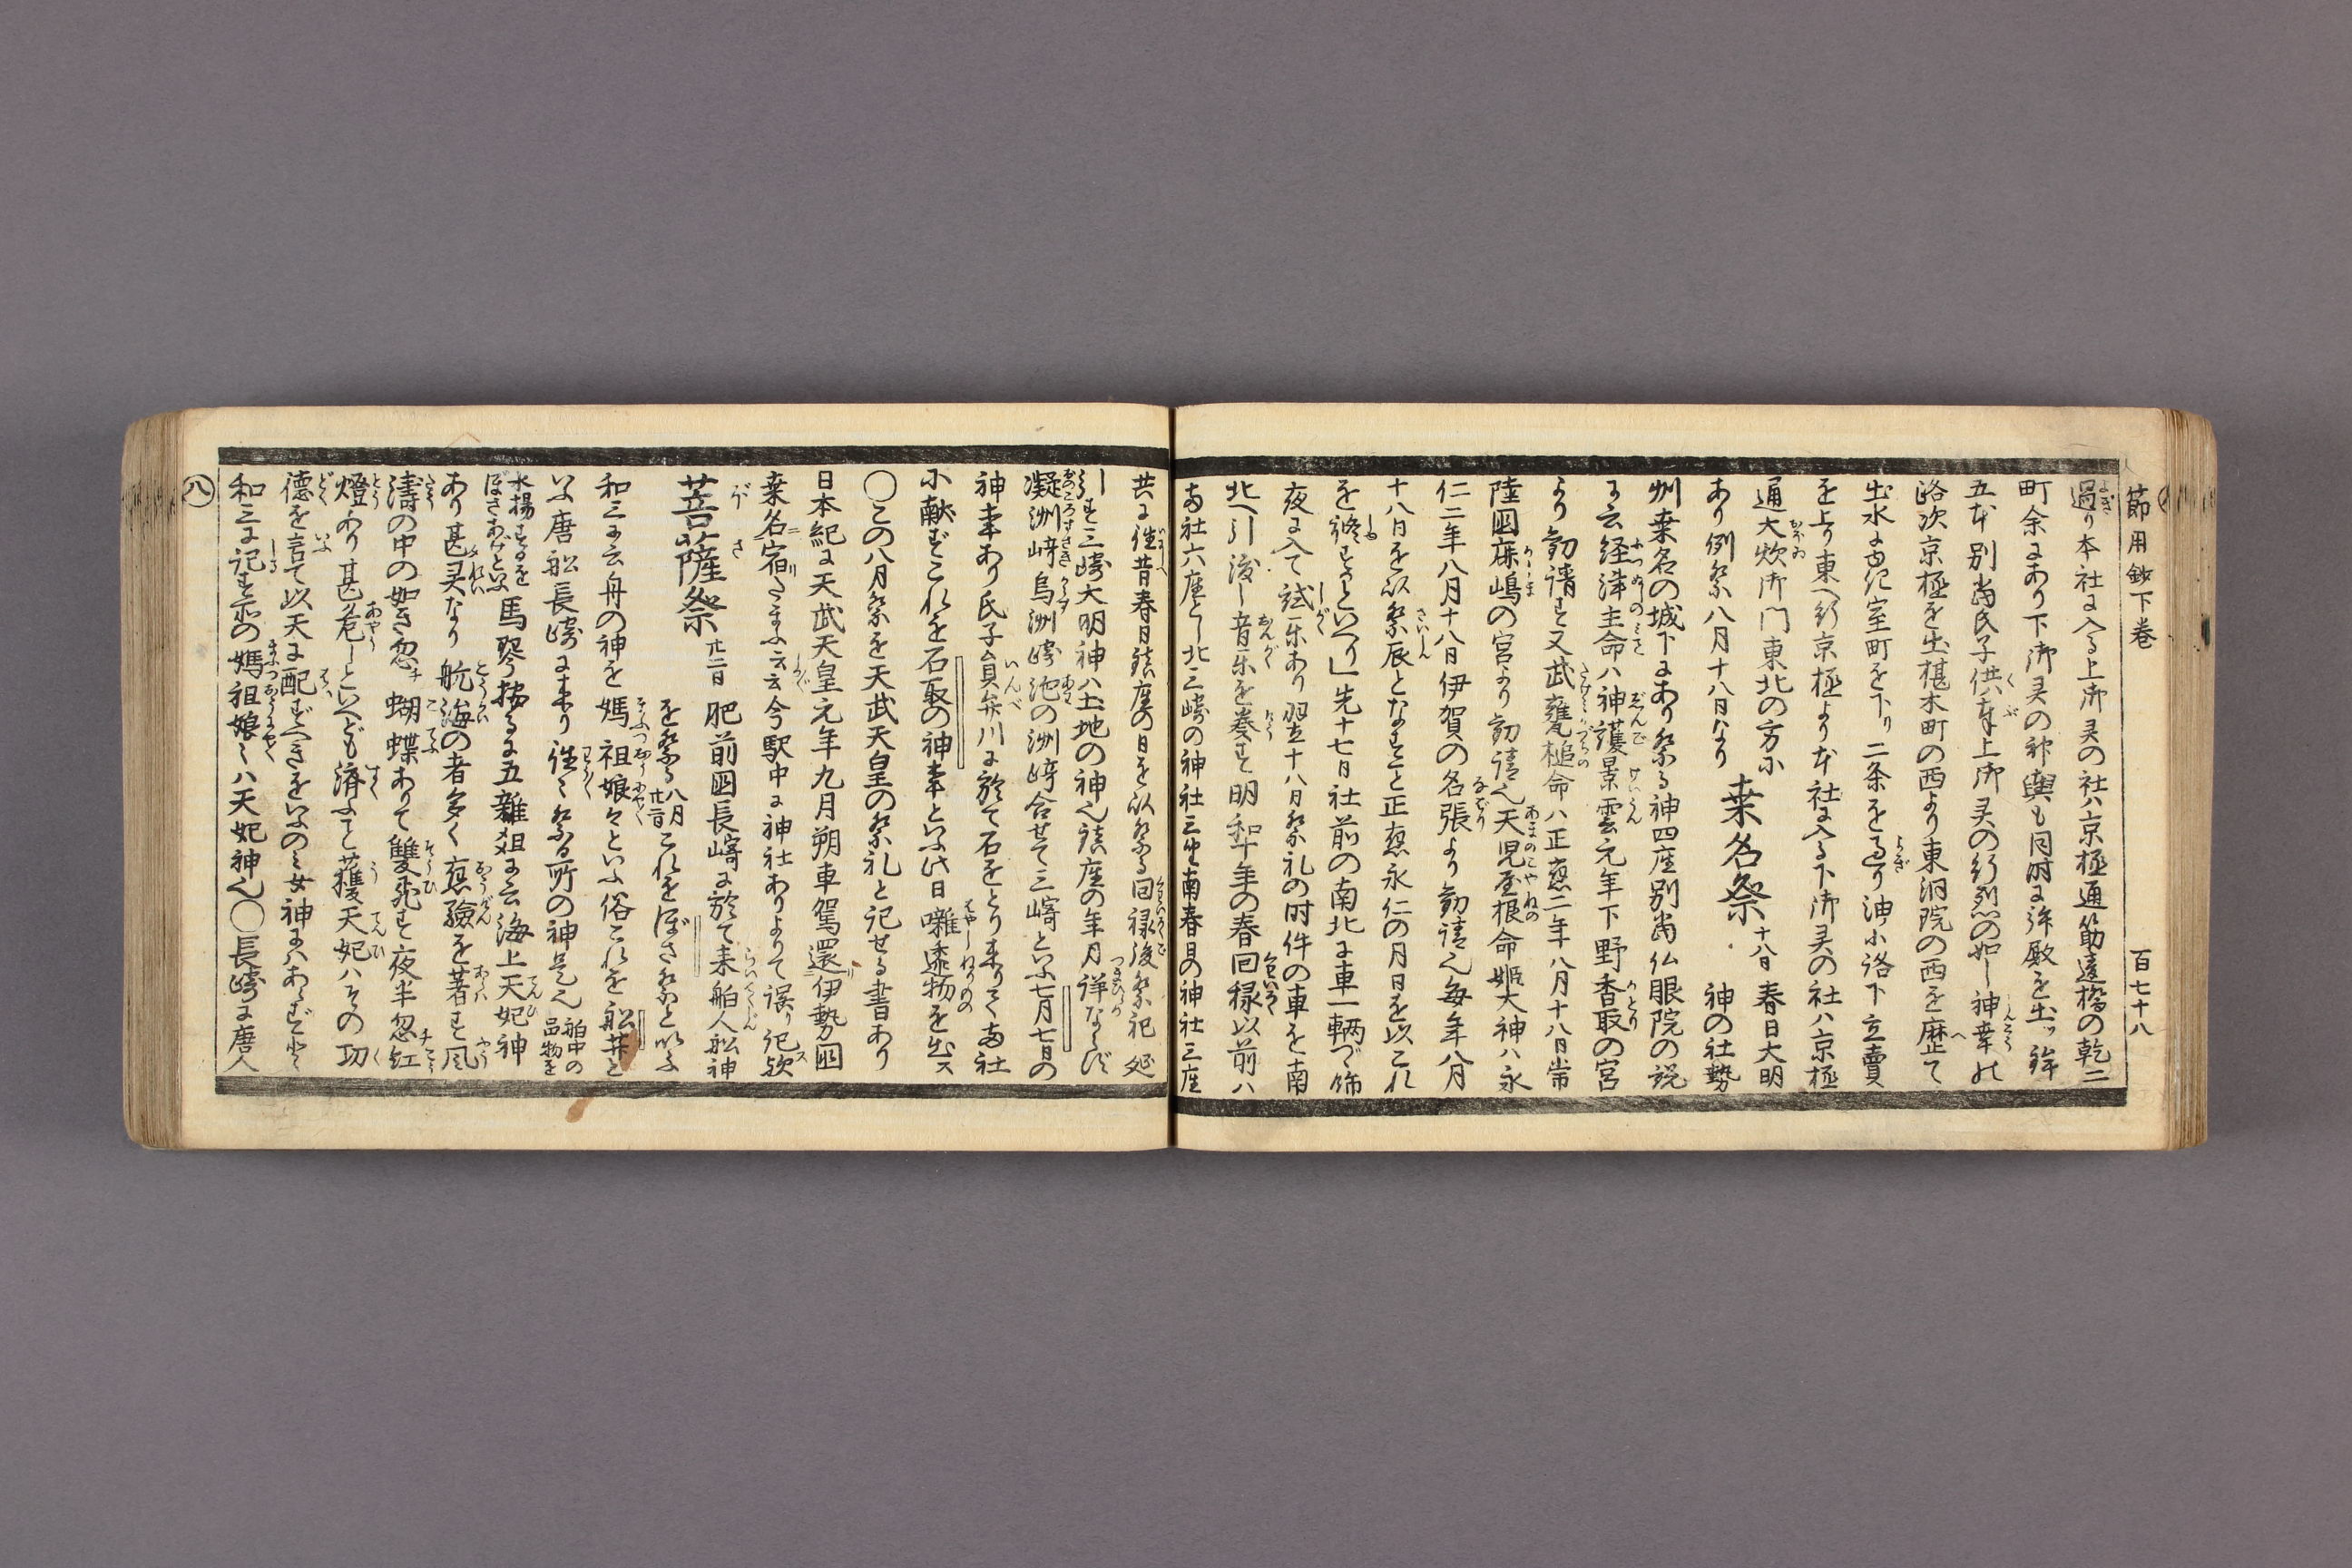 節用 下巻 百七十八
過り本社に入る上御灵の社ハ京極通筋違橋の乾二
町余にあり下御灵の神輿も同时に旅殿を出ッ鉾
五本別當氏子供奉上御灵の行烈の如し神幸の
路次京極を出椹木町の西より東洞院の西を歴て
出水に 室町を下り二条を過り油小路下立賣
を上り東へ行京極より本社に入る下御灵の社ハ京極
通大炊御门東北の方に
あり例祭八月十八日なり
桒名祭 十八日 春日大明神の社勢
州桒名の城下にあり祭る神四座別當仏眼院の説
に云経津主命ハ神護景雲元年下野香取の宮
より勧請す又武甕槌命ハ正應二年八月十八日常
陸國鹿嶋の宮より勧請也天児屋根命姫大神ハ永
仁二年八月十八日伊賀の名張より勧請也毎年八月
十八日を以祭辰となすと正應永仁の月日を以これ
を するといへり先十七日社前の南北に車一輌づゝ餝
夜に入て試楽あり翌十八日祭礼の时件の車を南
北へ引渡し音楽を奏す明和十年の春回禄以前ハ
両社六座とし北三﨑の神社三座南春日の神社三座
共に徃昔春日鎮座の日を以祭る回禄後祭祀 処
引す三﨑大明神ハ土地の神也鎮座の年月詳ならず
凝洲﨑烏洲﨑池の洲﨑合せて三﨑といふ七月七日の
神事あり氏子員弁川に於て石をとり来りて両社
に献ずこれを石取の神事といふ此日囃 物を出ス
〇この八月祭を天武天皇の祭礼と記せる書あり
日本紀に天武天皇元年九月朔車駕還伊勢國
桒名宿たまふ云云今駅中に神社ありよりて誤り祀ス歟
菩薩祭 廿二日 肥前国長﨑に於て来舶人舩神
を祭る八月廿二日これをぼさ祭と以ふ
和三に云舟の神を媽祖娘々といふ俗これを舩菩と
いふ唐舩長﨑に来り徃々祭る所の神是也舶中の品物を
水揚するをぼさあげといふ馬琴按るに五雜俎に云海上天妃神
あり甚灵なり航海の者多く應驗を著す風
濤の中の如き忽チ蝴蝶ありて雙飛す夜半忽紅
燈あり甚危しといへども済ふを獲天妃ハその功
徳を言て以天に配すべきをいふのミ女神にハあらずと
和三に記す所の媽祖娘々ハ天妃神也〇長﨑に唐人
八